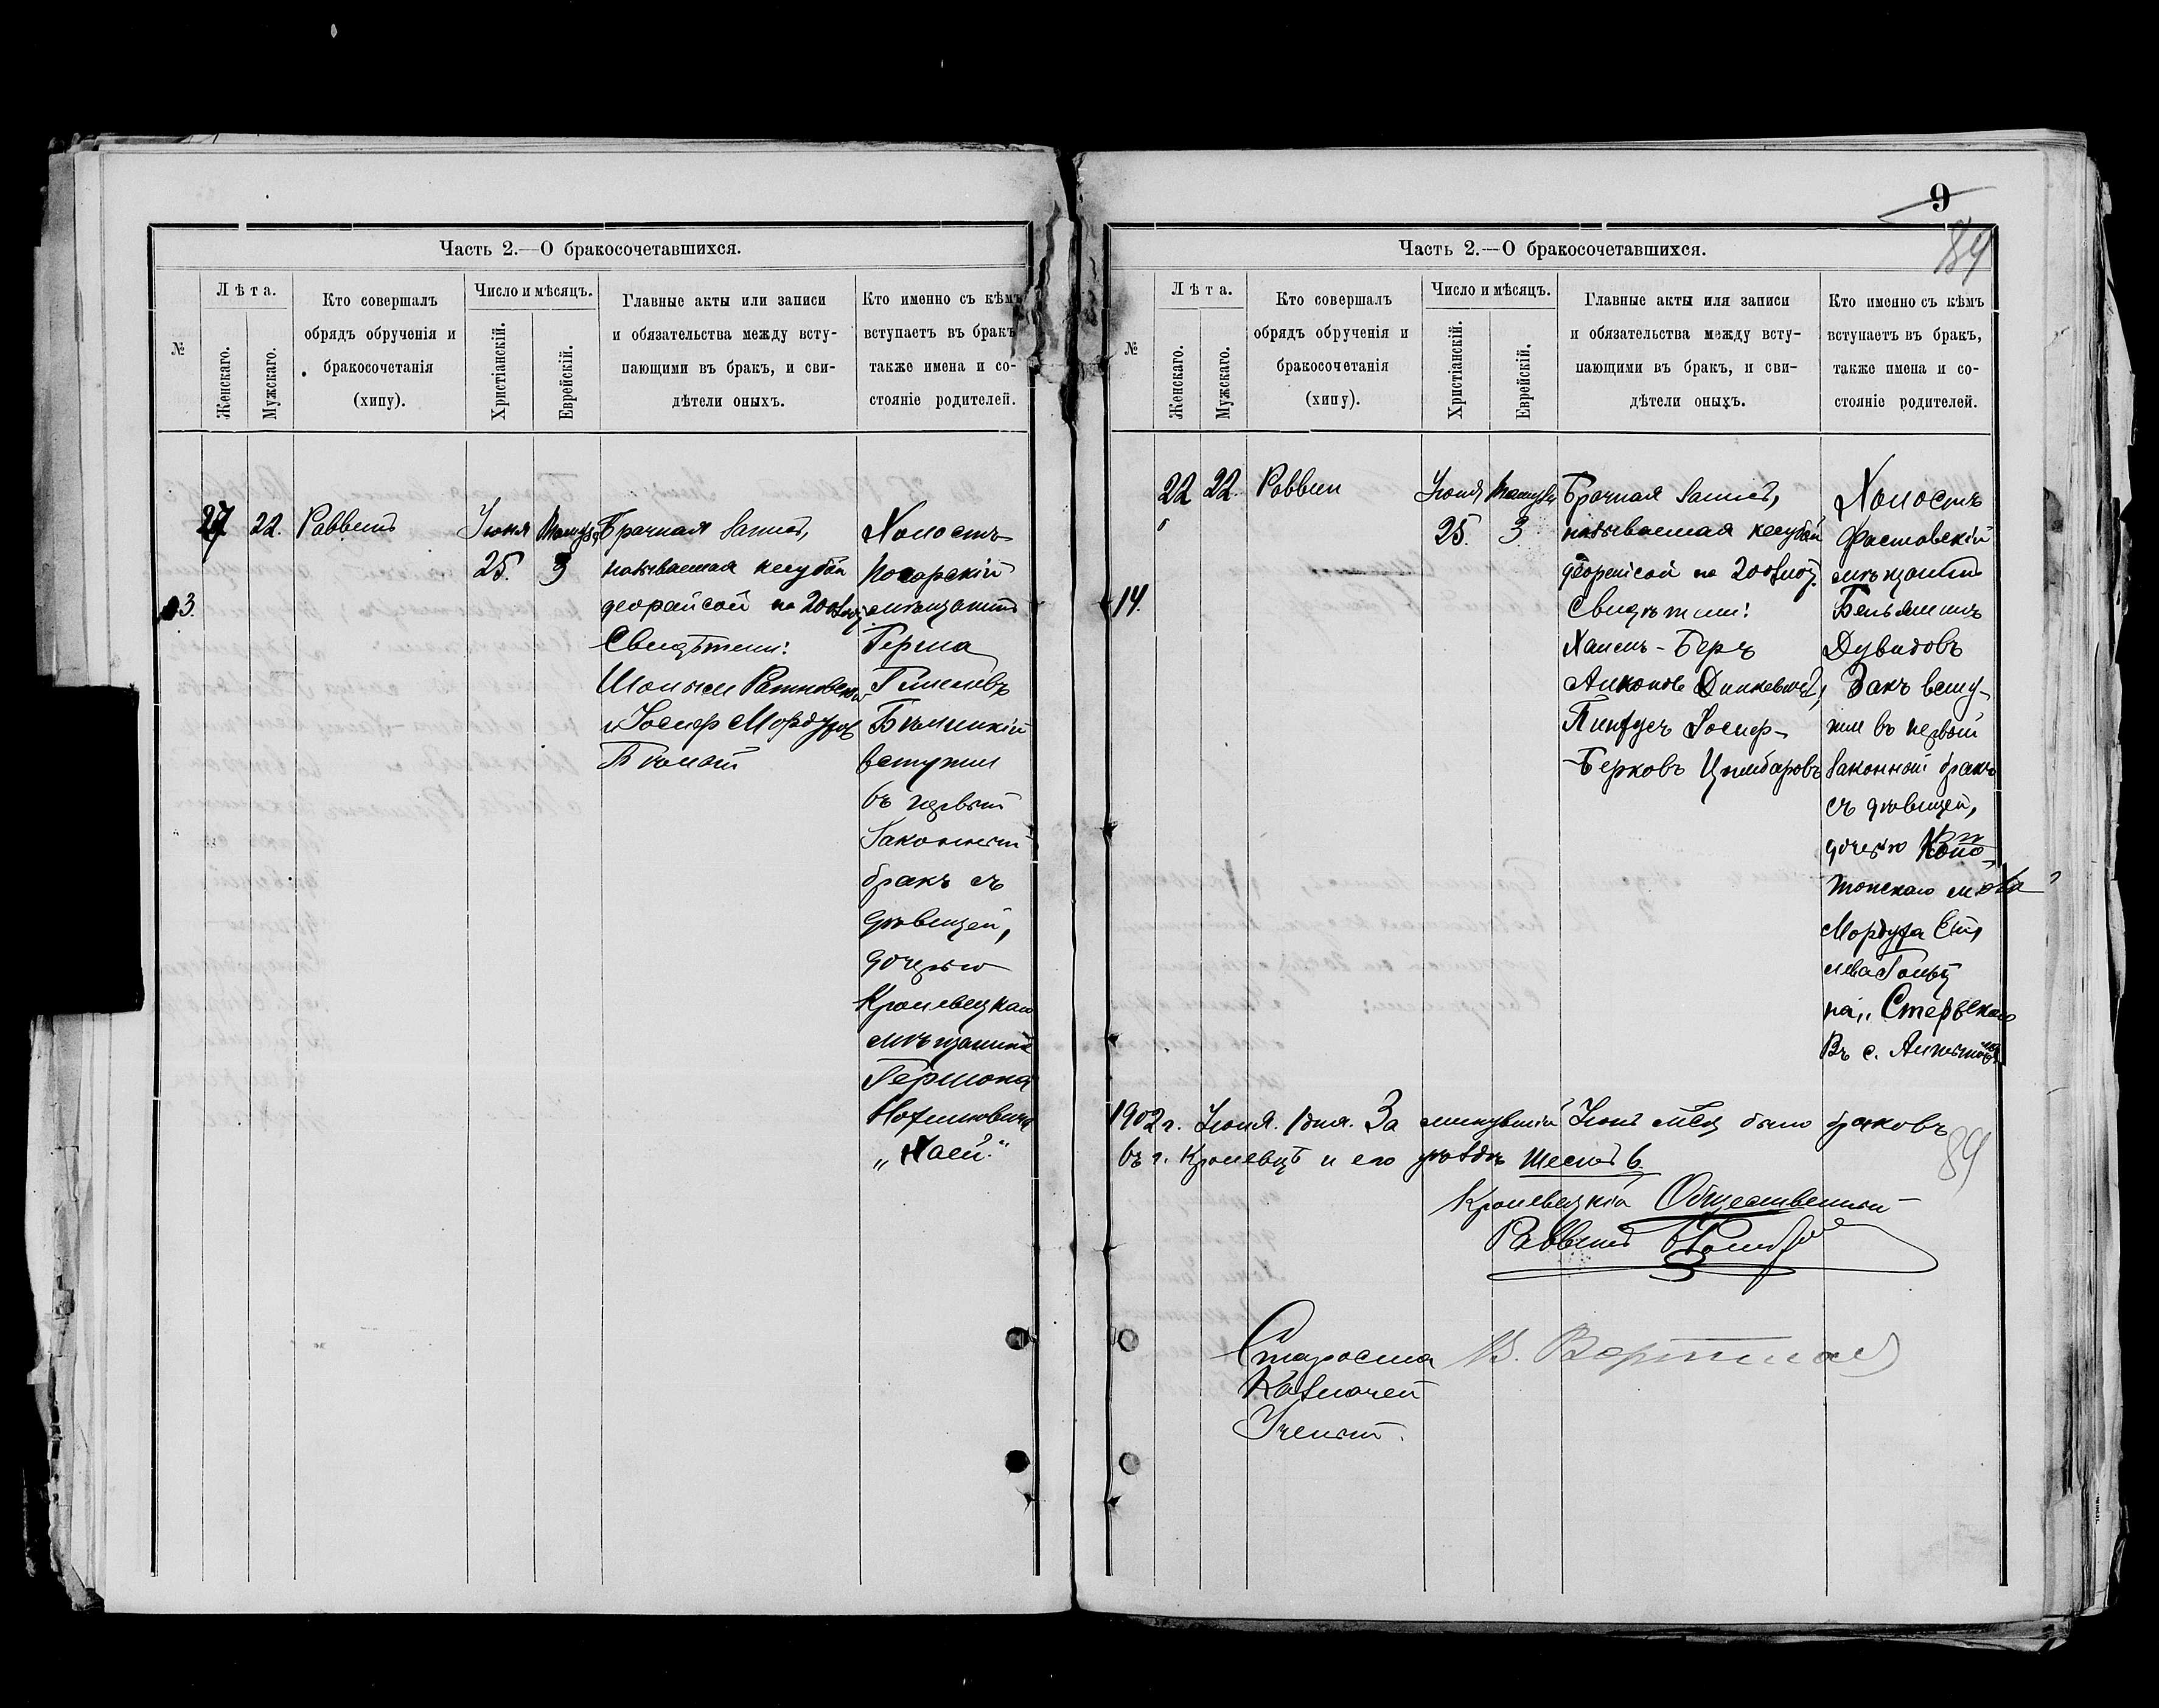 Часть 2.—О бракосочетавшихся.
№
Лѣта.
Женскаго.
Мужскаго.
Кто совершалъ
обрядъ обрученія и
бракосочетанія
(хипу).
Число и мѣсяцъ.
Христіанскій.
Еврейскій.
Главные акты или записи
и обязательства между всту-
пающими въ бракъ, и сви-
дѣтели оныхъ.
Кто именно съ кѣмъ
вступаетъ въ бракъ
также имена и со-
стояніе родителей.
3.
22.
Раввинъ
Іюня
25.
3
Брачная запись,
называемая кесубой
деорайсой на 200 злот
Свидѣтели:
Шолым
и Іосиф Мордухов
Холостъ
Погарскій
мѣщанинъ
Герша
вступил
въ первый
законный
бракъ съ
дѣвицей,
дочерью
Кролевецкаго
мѣщанина
Гершона
„Хаей."
9
84
Часть 2.—О бракосочетавшихся.
№
Лѣта.
Женскаго.
Мужскаго.
Кто совершалъ
обрядъ обрученія и
бракосочетанія
(хипу).
Число и мѣсяцъ.
Христіанскій.
Еврейскій.
Главные акты или записи
и обязательства между всту-
пающими въ бракъ, и сви-
дѣтели оныхъ.
Кто именно съ кѣмъ
вступаетъ въ бракъ,
также имена и со-
стояніе родителей.
14.
22
22.
Раввин
Іюня
25.
3
Брачная запись,
называемая кесубой
деорайсой на 200 злот.
Свидѣтели:
Хаимъ-Беръ
Пинхус Іосиф-
Берковъ Цимбаровъ
Холостъ
Фастовскій
мѣщанинъ
Беньяминъ
Дувидовъ
Закъ всту-
пил въ первый
законный бракъ
съ дѣвицей,
дочерью Коно-
топскаго
Мордуха
1902 г. Іюля. 1 дня. За минувшій Іюнь мѣсяц было браковъ
въ г. Кролевцѣ и его уѣздѣ шесть 6.
89
Кролевецкій Общественный
Раввинъ
Староста
Казначей
Ученый.